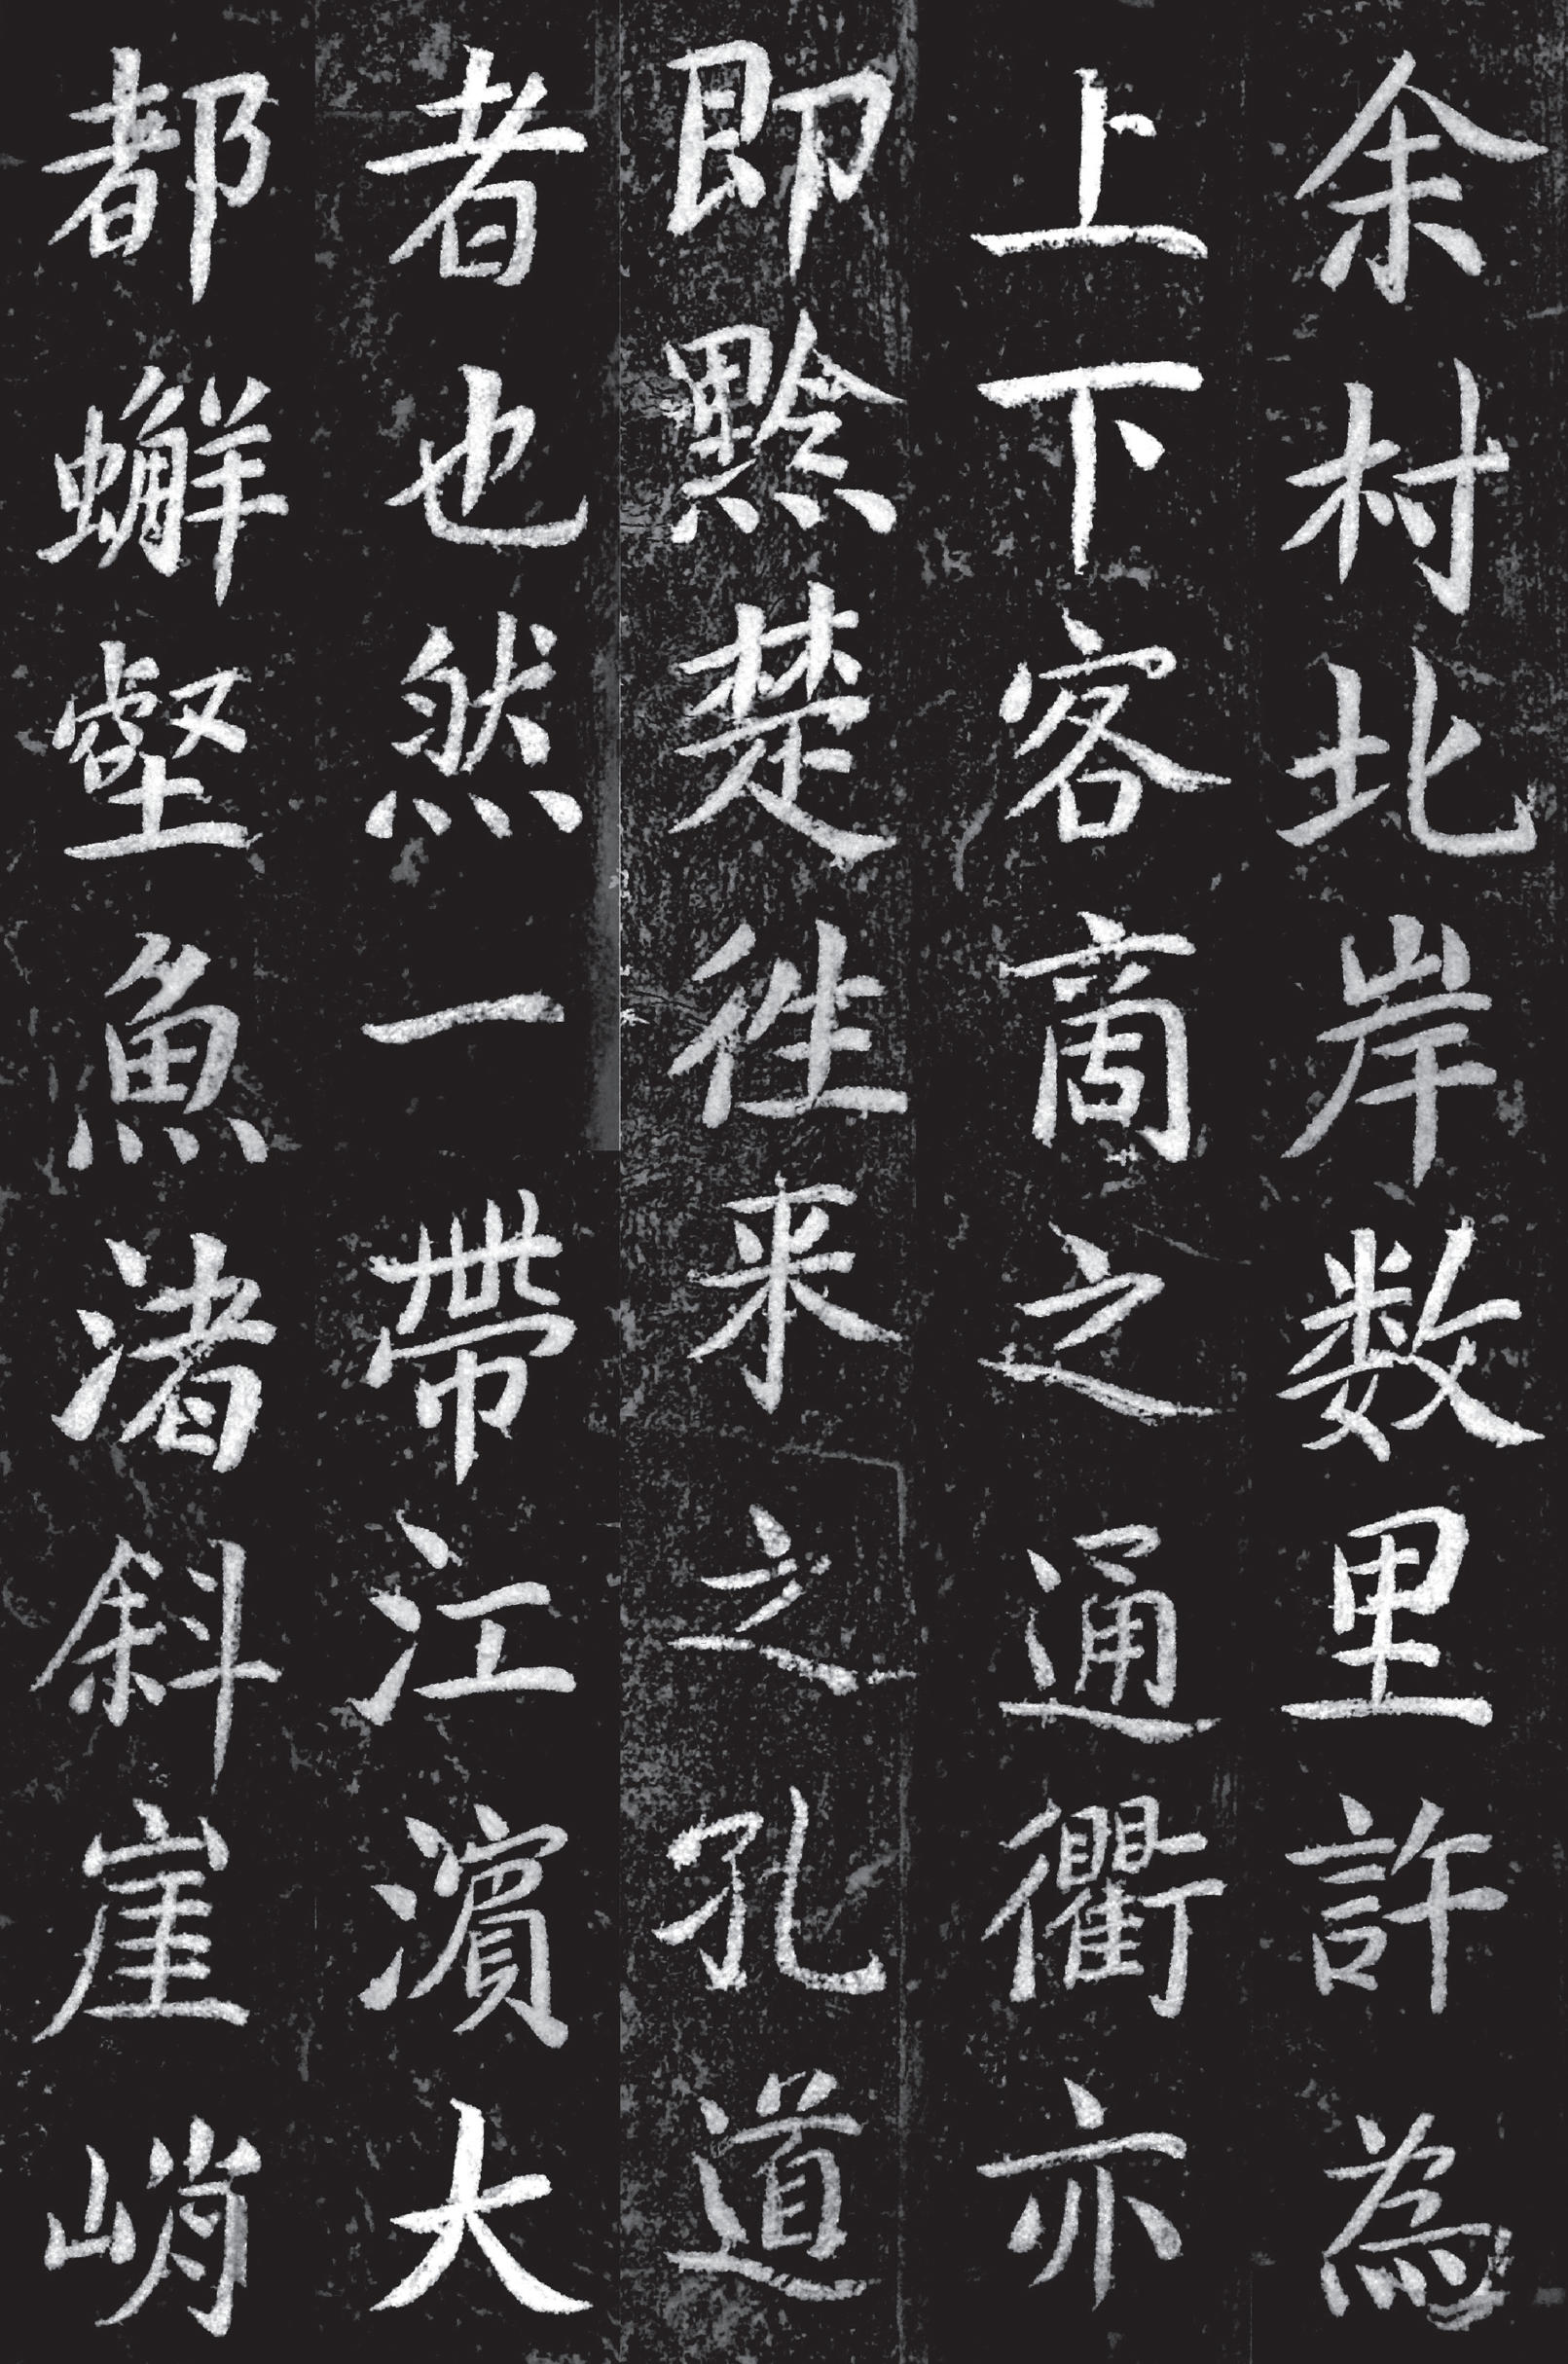 余村北岸数里許為
上下客商之通衢亦
即黔楚徃来之孔道
者也然一帶江濵大
都蠏壑魚渚斜崖峭